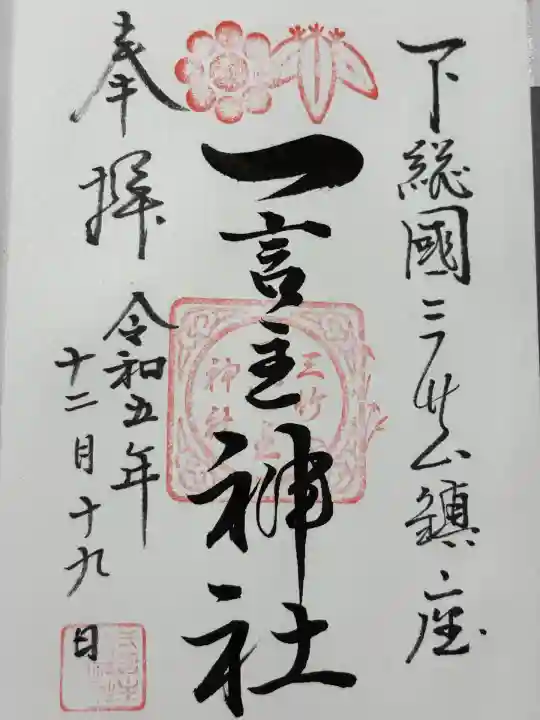 下総國三竹山鎮座
一言主神社
奉拝
令和五年
十二月十九日